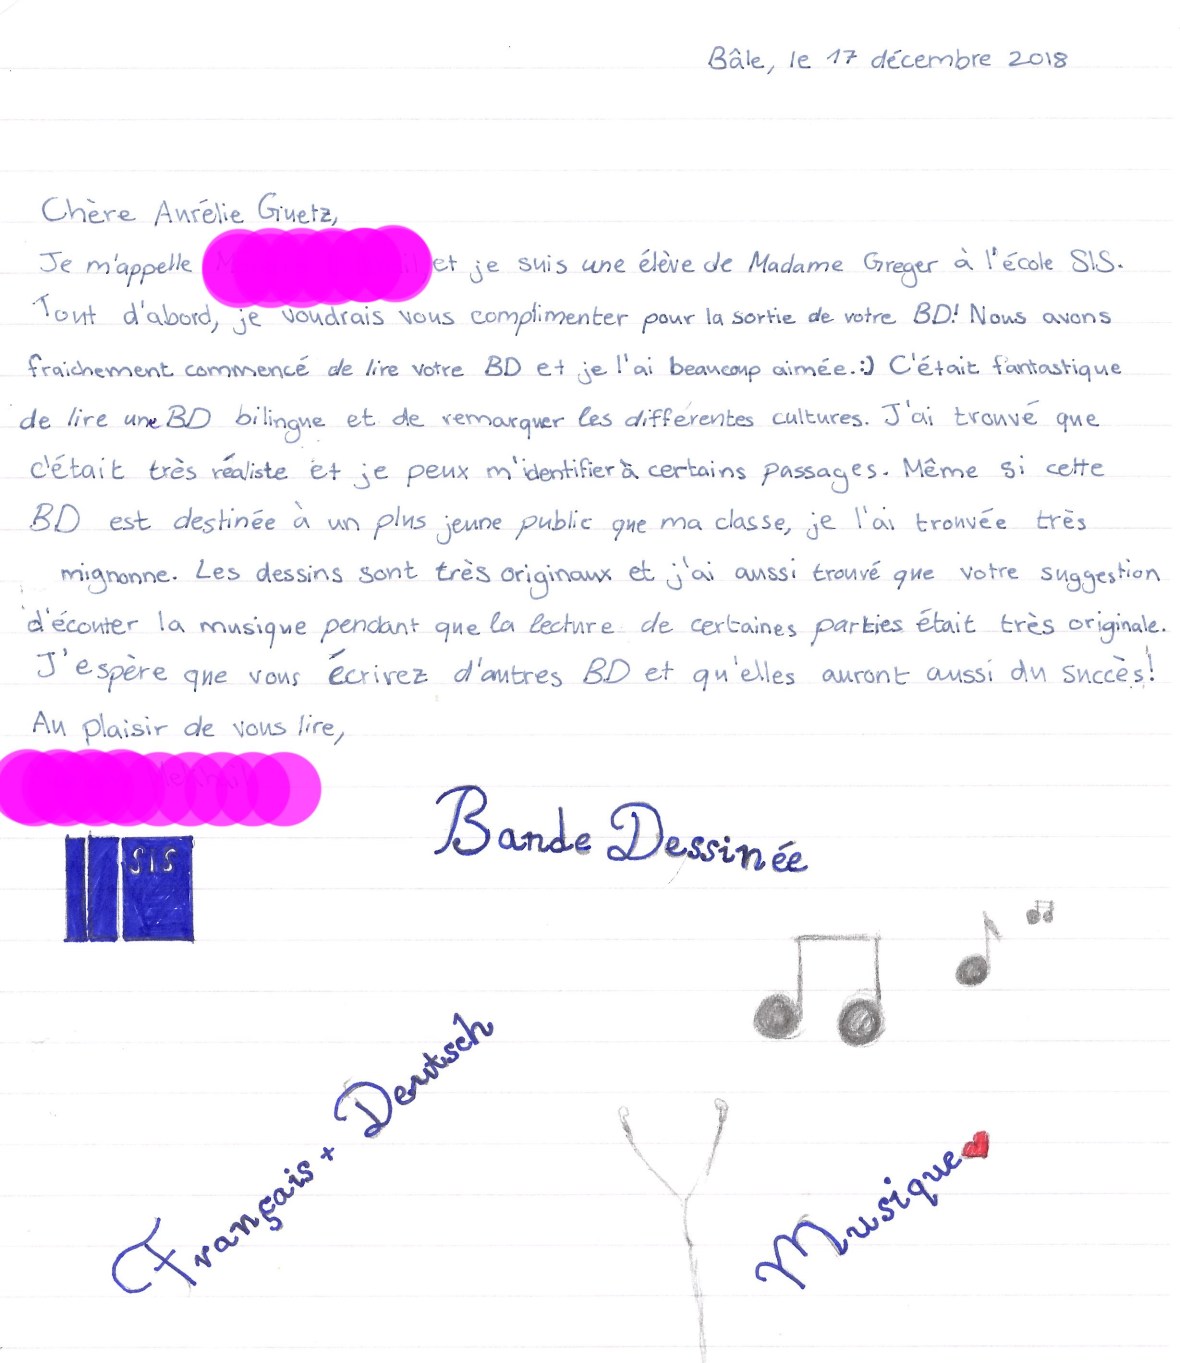 Bâle, le 17 décembre 2018
Chère Aurélie Guetz,
Je m'appelle et je suis une élève de Madame Greger à l'école SIS.
Tout d'abord, je voudrais vous complimenter pour la sortie de votre BD! Nous avons
fraichement commencé de lire votre BD et je l'ai beaucoup aimée.:) C'était fantastique
de lire une BD bilingue et de remarquer les différentes cultures. J'ai trouvé que
c'était très réaliste et je peux m'identifier à certains passages. Même si cette
BD est destinée à un plus jeune public que ma classe, je l'ai trouvée très
mignonne. Les dessins sont très originaux et j'ai aussi trouvé que votre suggestion
d'écouter la musique pendant que la lecture de certaines parties était très originale.
J'espère que vous écrivez d'autres BD et qu'elles auront aussi du succès!
Au plaisir de vous lire,
SIS
Bande Dessinée
Français + Deutsch
Musique